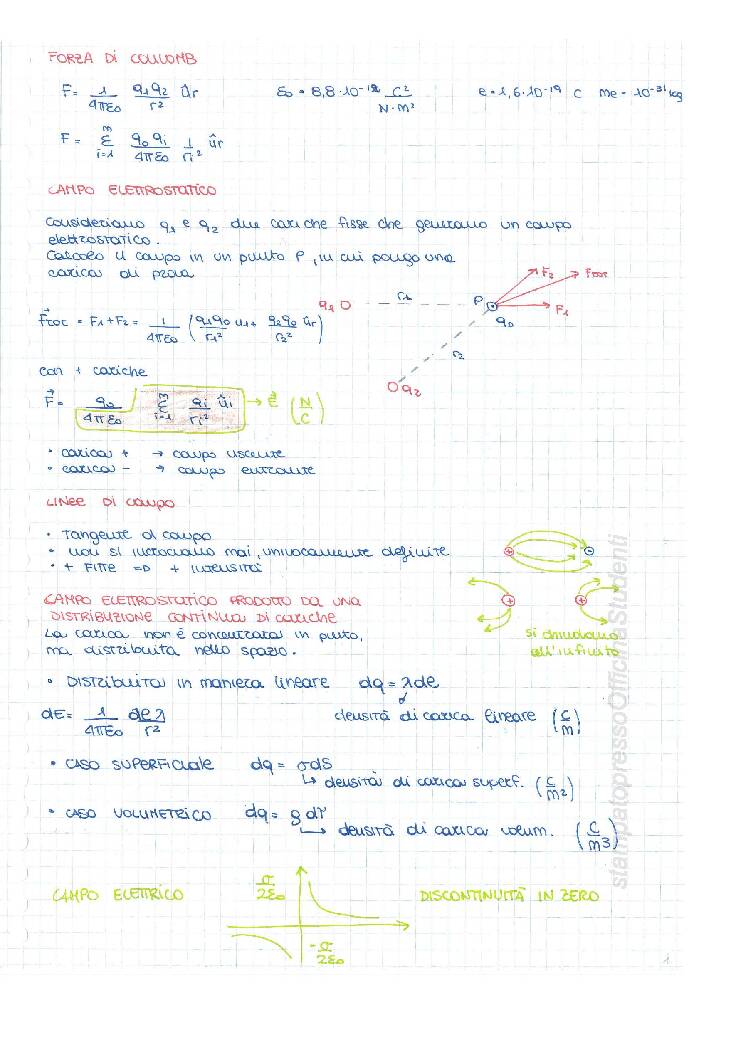 FORZA DI COULOMB
F = 1/4πε₀ q₁q₂/r² ûr    ε₀ = 8,8·10⁻¹² C²/N·m²    e = 1,6·10⁻¹⁹ C    me = 10⁻³¹ kg
F = Σ_{i=1}^{m} q₀qi/4πε₀ 1/ri² ûr
CAMPO ELETTROSTATICO
Consideriamo q₁ e q₂ due cariche fisse che generano un campo
elettrostatico.
Calcolo il campo in un punto P, in cui pongo una
carica di prova
F₂ Ftot
q₁ r₁ P F₁
q₀
F⃗tot = F₁+F₂ = 1/4πε₀ (q₁q₀/r₁² u₁+ q₂q₀/r₂² ûr)
r₂
con + cariche
q₂
F⃗ = q₀/4πε₀ Σ_{i=1}^{m} qi/ri² ûi → E⃗ (N/C)
• carica + → campo uscente
• carica - → campo entrante
LINEE DI CAMPO
• Tangente al campo
• non si incrociano mai, univocamente definite
• + FITTE => + intensità
+ -
CAMPO ELETTROSTATICO PRODOTTO DA UNA
DISTRIBUZIONE CONTINUA DI CARICHE
+ +
La carica non è concentrata in punto,
ma distribuita nello spazio.
si chiudono
all'infinito
• DISTRIBUITA in maniera lineare    dq = λdl
dE = 1/4πε₀ dl λ/r²    densità di carica lineare (C/m)
• CASO SUPERFICIALE    dq = σdS
↳ densità di carica superf. (C/m²)
• CASO VOLUMETRICO    dq = ρdτ
↳ densità di carica volum. (C/m³)
CAMPO ELETTRICO    σ/2ε₀    DISCONTINUITÀ IN ZERO
-σ/2ε₀
1
stampatopressoOfficinaStudenti